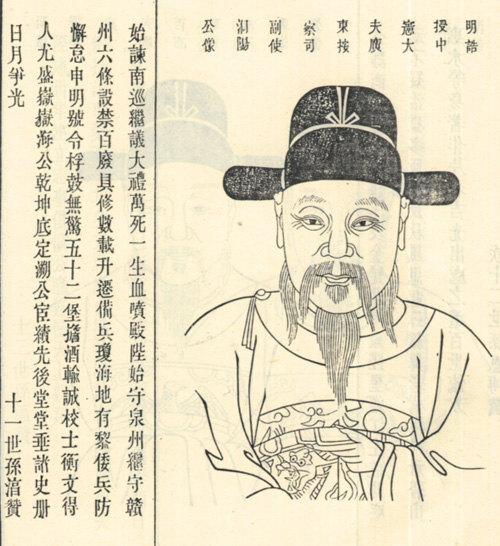 明誥
授中
憲大
夫廣
東按
察司
副使
陽
公像
始諫南巡繼議大禮萬死一生血噴殿陛始守泉州繼守贛
州六條設禁百廢具修數載升遷備兵瓊海地有黎倭兵防
懈怠申明號令桴鼓無驚五十二堡擔酒輸誠校士衡文得
人尤盛嶽嶽海公乾坤底定溯公宦績先後堂堂垂諸史册
日月爭光
十一世孫贊